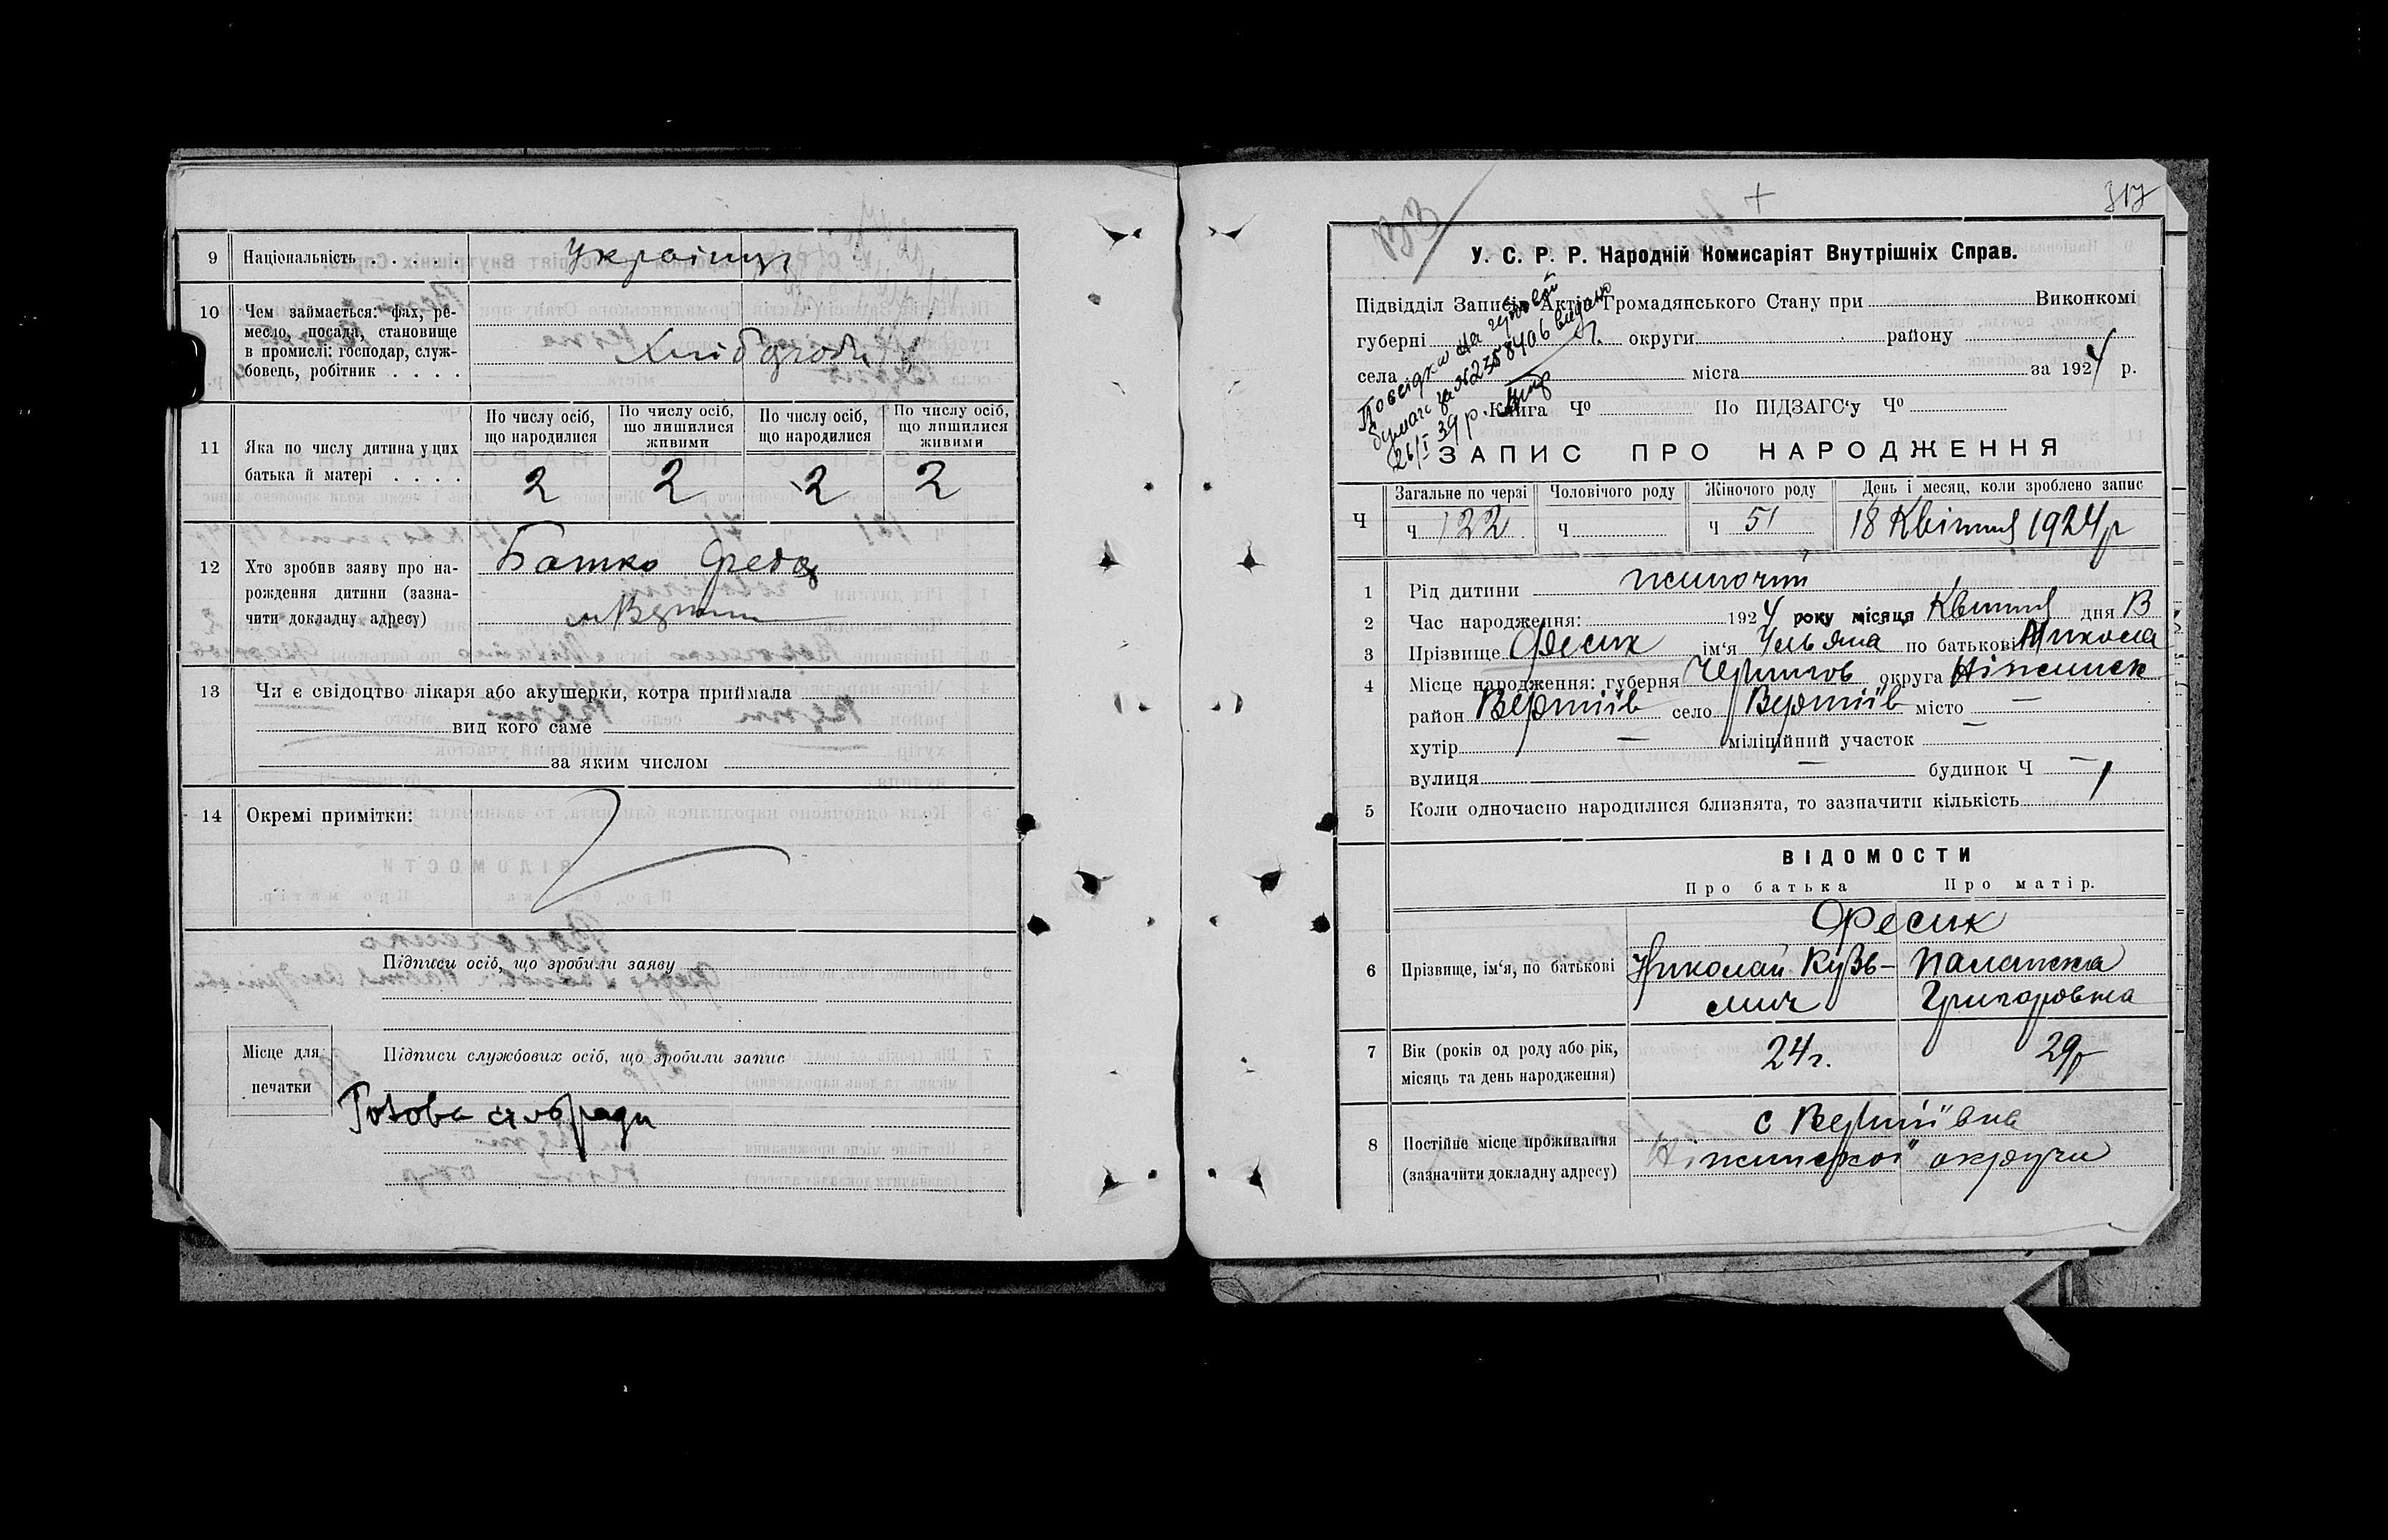 9 Національність . . . . . Українці
10 Чем займається: фах, ре-
месло, посада, становище
в промислі: господар, служ-
бовець, робітник . . . . Хлібороби
По числу осіб, що народилися
По числу осіб, що лишилися живими
По числу осіб, що народилися
По числу осіб, що лишилися живими
11 Яка по числу дитина у цих
батька й матері . . . . 2 2 2 2
12 Хто зробив заяву про на-
рождення дитини (зазна-
чити докладну адресу)
Батько Федор
13 Чи є свідоцтво лікаря або акушерки, котра приймала
вид кого саме
за яким числом
14 Окремі примітки:
Підписи осіб, що зробили заяву
Місце для
печатки
Підписи службових осіб, що зробили запис
Голова сільради
317
У. С. Р. Р. Народній Комисаріят Внутрішніх Справ.
Підвідділ Записів Актів Громадянського Стану при Виконкомі
губерні округи району
села міста за 1924 р.
Книга Чº По ПІДЗАГС‘у Чº
26/I 39 р.
ЗАПИС ПРО НАРОДЖЕННЯ
Ч
Загальне по черзі Чоловічого роду Жіночого роду День і месяц, коли зроблено запис
Ч 122 Ч Ч 51 18 Квітня 1924 р
1 Рід дитини жиночий
2 Час народження: 1924 року місяця Квітня дня 13
3 Прізвище Фесик ім‘я Ульяна по батькові Микола
4 Місце народження: губерня Чернигов округа Ніжинск
район Вертіїв село Вертіїв місто —
хутір — міліційний участок —
вулиця — будинок Ч —
5 Коли одночасно народилися близнята, то зазначити кількість 1
ВІДОМОСТИ
Про батька Про матір.
Фесик
6 Прізвище, ім‘я, по батькові Николай Кузь- Палажка
мич Григоровна
7 Вік (років од роду або рік,
місяць та день народження) 24 г. 29 р
8 Постійне місце проживання
(зазначити докладну адресу)
с Вертіївка
Ніжинської округи